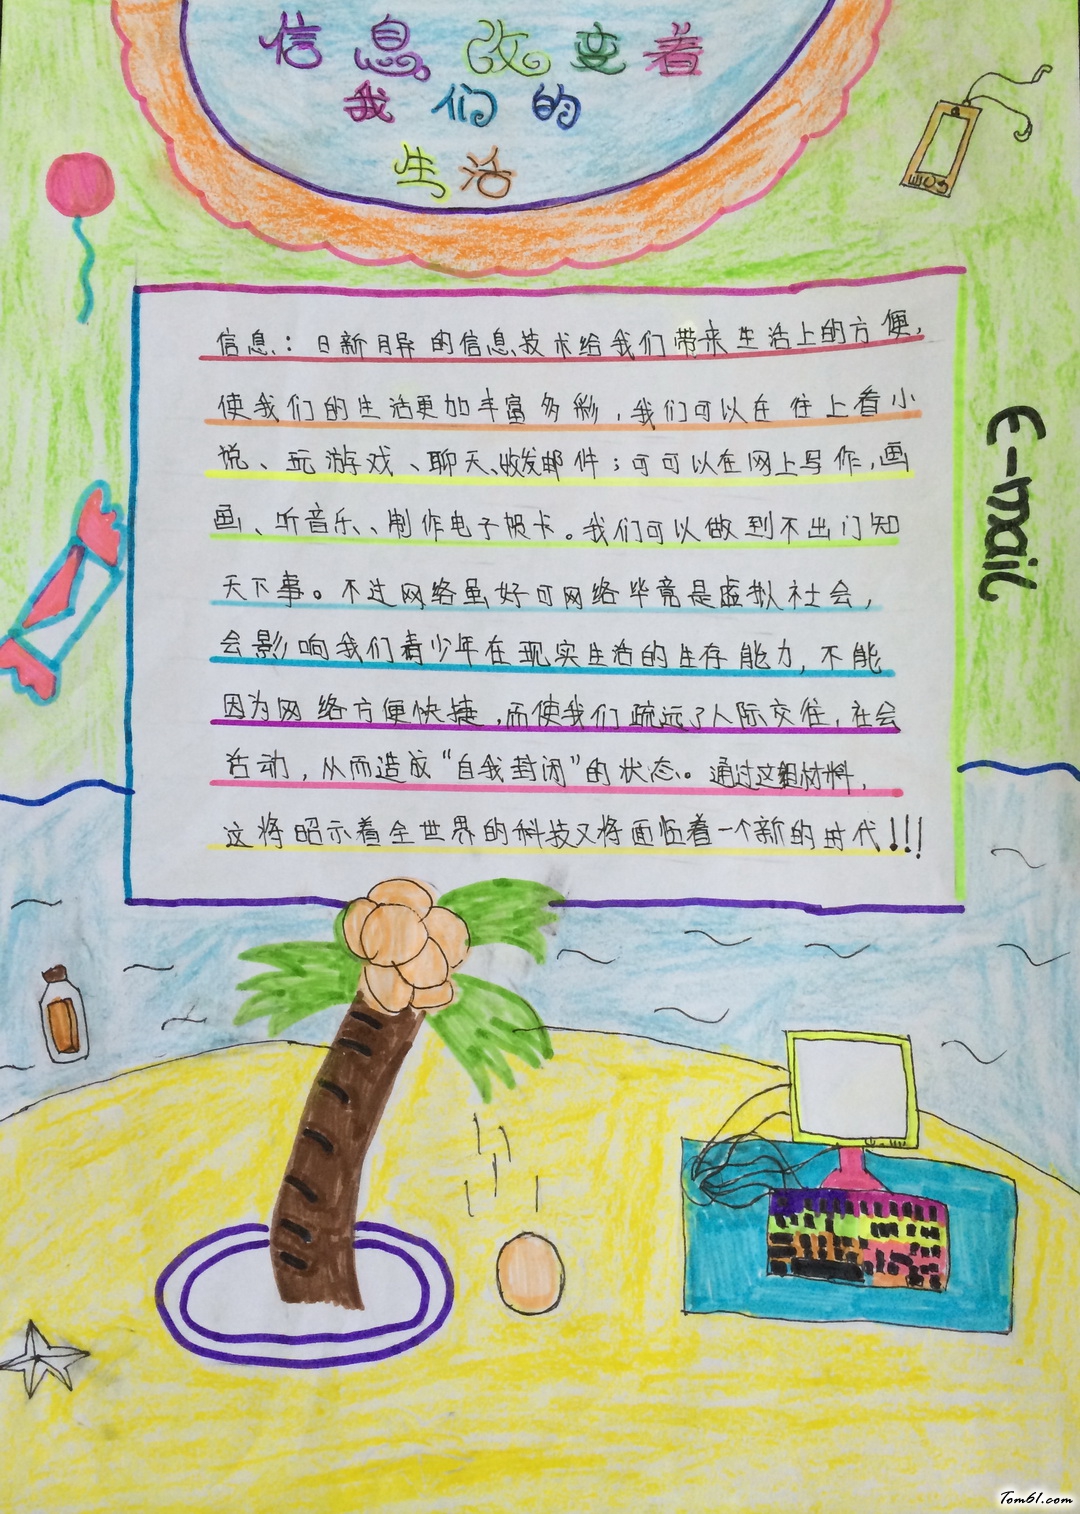 信息改变着
我们的
生活
信息：日新月异的信息技术给我们带来生活上的方便，
使我们的生活更加丰富多彩，我们可以在往上看小
说、玩游戏、聊天、收发邮件；可可以在网上写作，画
画、听音乐、制作电子贺卡。我们可以做到不出门知
天下事。不过网络虽好可网络毕竟是虚拟社会，
会影响我们青少年在现实生活的生存能力，不能
因为网络方便快捷，而使我们疏远了人际交往，社会
活动，从而造成“自我封闭”的状态。通过这组材料，
这将昭示着全世界的科技又将面临着一个新的时代!!!
E-mail
Tom61.com